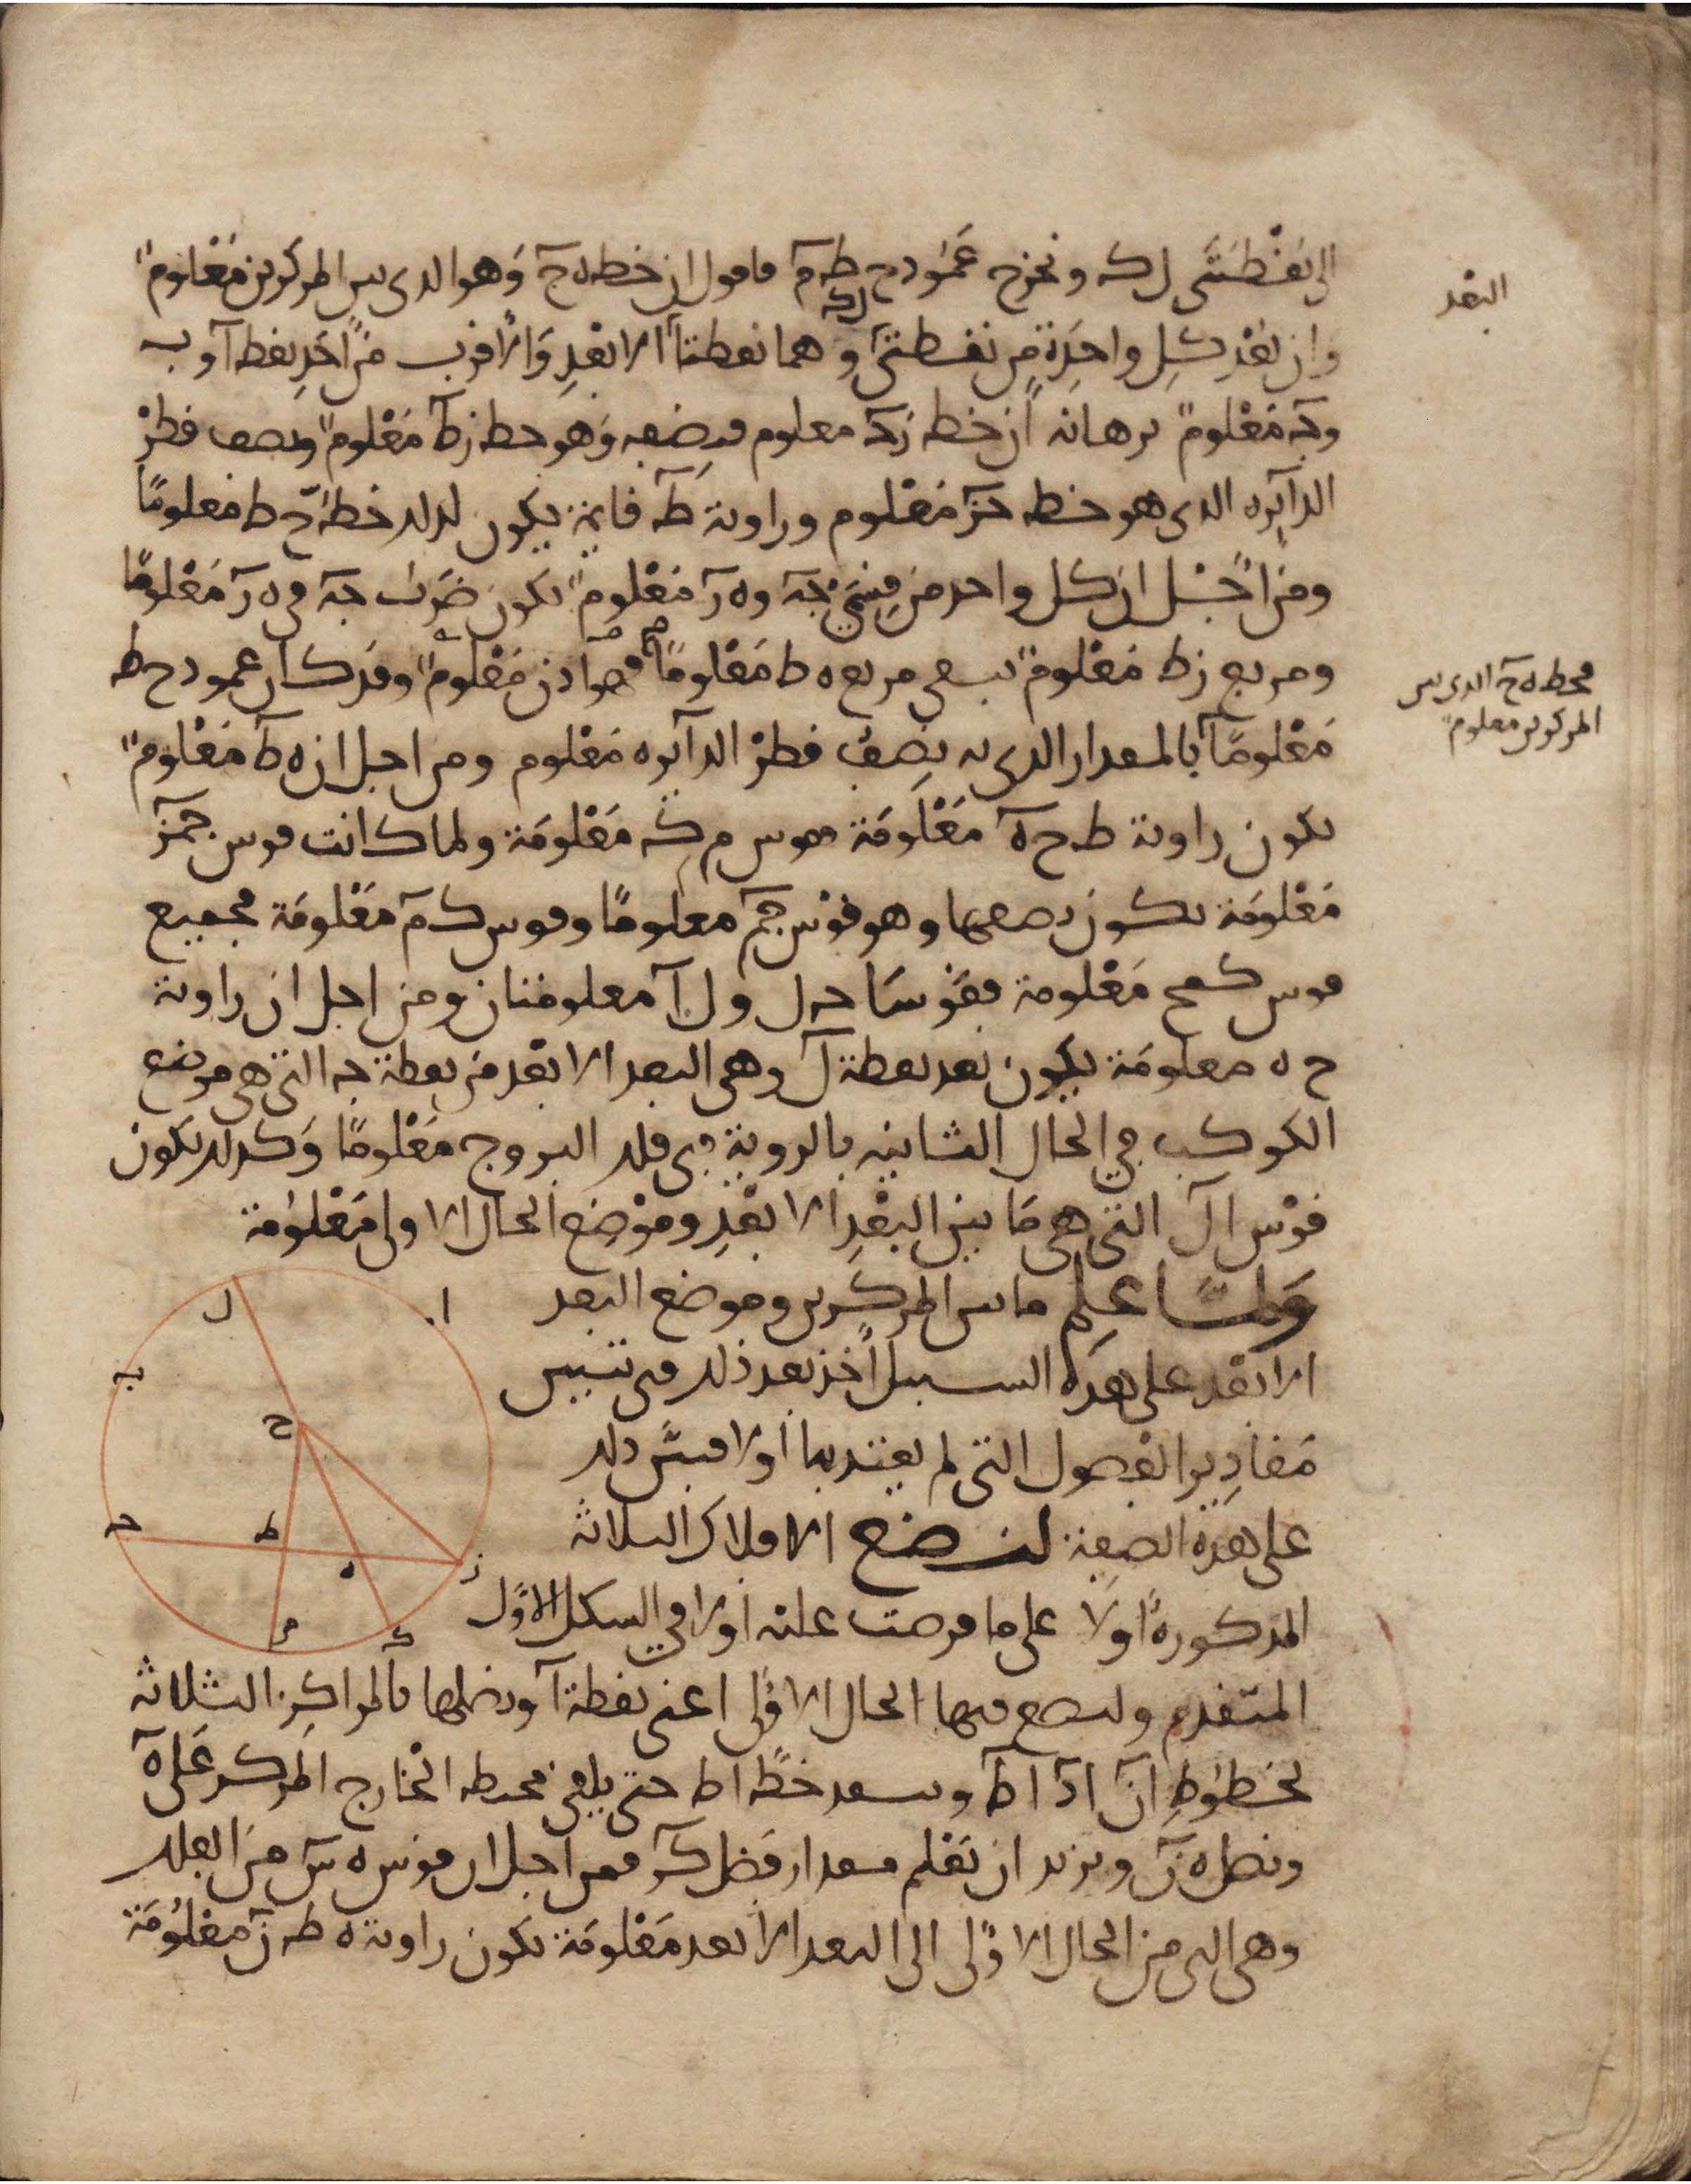 الى نقطتى ل ك ونخرج عمود ح ط م فاقول ان خط ه ح وهو الدى بين المركزين معلوم
وان بعد كل واحدة من نقطتى ل ك وهما نقطتا الابعد والاقرب من احد نقط آ و ب
و جـ معلوم برهانه ان خط ز جـ معلوم فنصفه وهو خط ز ط معلوم ونصف قطر
الدآئره الدى هو خط ح ز معلوم وزاوية ط قائمة يكون لدلك خط ح ط معلومًا
ومن اجل ان كل واحد من قسمى جـ ه و ه ز معلوم يكون ضرب جـ ه فى ه ز معلومًا
ومربع ز ط معلوم يبقى مربع ه ط معلومًا فهو اذن معلوم وقد كان عمود ح ط
معلومًا بالمقدار الدى به نصف قطر الدآئره معلوم ومن اجل ان ه ط معلوم
يكون زاوية ط ح ه معلومة فقوس م ك معلومة ولما كانت قوس جـ م ز
معلومة يكون نصفها وهو قوس جـ م معلومًا وقوس ك م معلومة فجميع
قوس ك م جـ معلومة فقوسا جـ ل و ل آ معلومتان ومن اجل ان زاوية
ح ه معلومة يكون بعد نقطة ل وهى البعد الابعد من نقطة جـ التى هى موضع
الكوكب في الحال الثانيه بالروية فى فلك البروج معلومًا وكدلك يكون
قوس ا ل التى هى ما بين البعد الابعد وموضع الحال الاولى معلومة
ولمّا علم ما بين المركزين وموضع البعد
الابعد على هده السبيل اخذ بعد ذلك فى تبيين
مقادير الفصول التى لم يعتد بها اولا فبين دلك
على هده الصفة لنضع الافلاك الثلاثة
المدكورة اولا على ما فرضت عليه اولا في الشكل الاول
المتقدم ولنضع فيها الحال الاولى اعنى نقطة آ ونصلها بالمراكز الثلاثه
بخطوط ا ن ا د ا ط وينفد خط ا ط حتى يلقى محيط الخارج المركز على ه
ونصل ه ن ونريد ان نعلم مقدار فضل س فمن اجل ان قوس ه س من الفلك
وهى التى من الحال الاولى الى البعد الابعد معلومة يكون زاوية ه ط ن معلومة
البعد
فخط ه ح الدى بين
المركزين معلوم
ا
ل
ب
ح
جـ
ط
ه
ز
م
ك